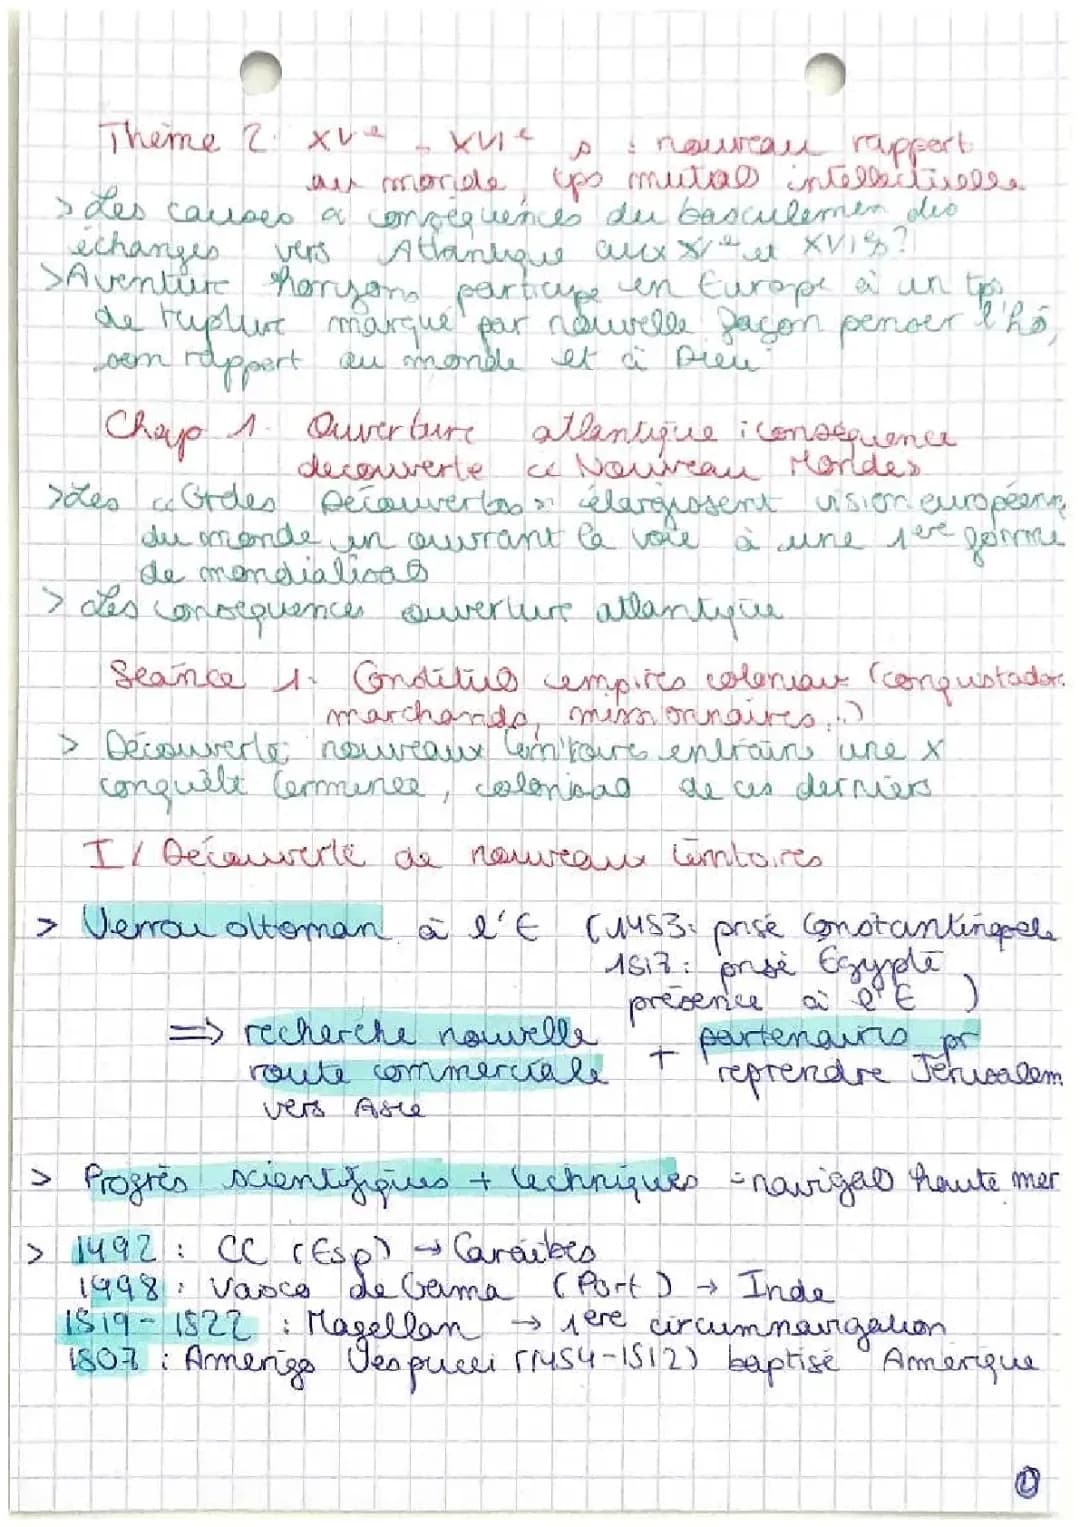 Thème 2. XVe - XVIe s : nouveau rapport
au monde, tps mutao intellectuelle
> Les causes & conséquences du basculemen des
échanges vers Atlantique aux XVe et XVI s?
> Aventure horizons participe en Europe à un tps
de rupture marqué par nouvelle façon penser l'hô,
son rapport au monde et à Dieu
Chap 1. Ouverture atlantique : conséquence
decouverte << Nouveau Mondes
> Les << Grdes Découvertes >> élargissent vision européenne
du monde en ouvrant la voie à une 1ère forme
de mondialisao
> Les conséquences ouverture atlantique
Séance 1. Constituo empires coloniaux (conquistador.
marchands, missionnaires,..)
> Découverte nouveaux territoires entraîne une x
conquête terminée, colonisao de ces derniers
I / Découverte de nouveaux territoires
> Verrou ottoman à l'E (1453: prise Constantinople
1517: prise Egypte
présence à l'E )
=> recherche nouvelle + partenaires pr
route commerciale reprendre Jérusalem
vers Asie
> Progrès scientifiques + techniques = navigao haute mer
> 1492 : CC (Esp) → Caraïbes
1498 : Vasco de Gama (Port) → Inde
1519-1522 : Magellan → 1ère circumnavigation
1507 : Amerigo Vespucci (1454-1512) baptise Amérique
1